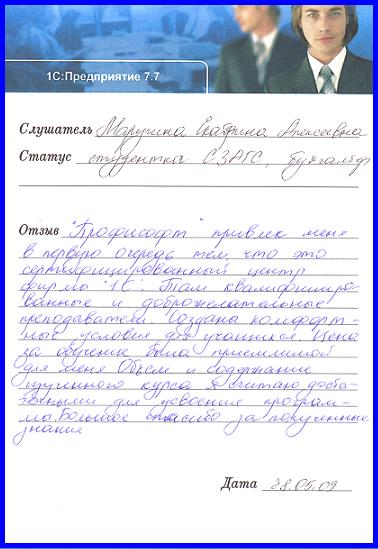 1С:Предприятие 7.7
Слушатель Марунина Екатерина Алексеевна
Статус студентка СЗАГС, бухгалтер
Отзыв "Профисофт" привлек меня
в первую очередь тем, что это
сертифицированный центр
фирмы "1С". Там квалифициро-
ванные и доброжелательные
преподаватели. Созданы комфорт-
ные условия для учащихся. Цена
за обучение была приемлимой
для меня Объем и содержание
изученного курса я считаю доста-
точными для усвоения програм-
мы. Большое спасибо за полученные
знания
Дата 28.05.09